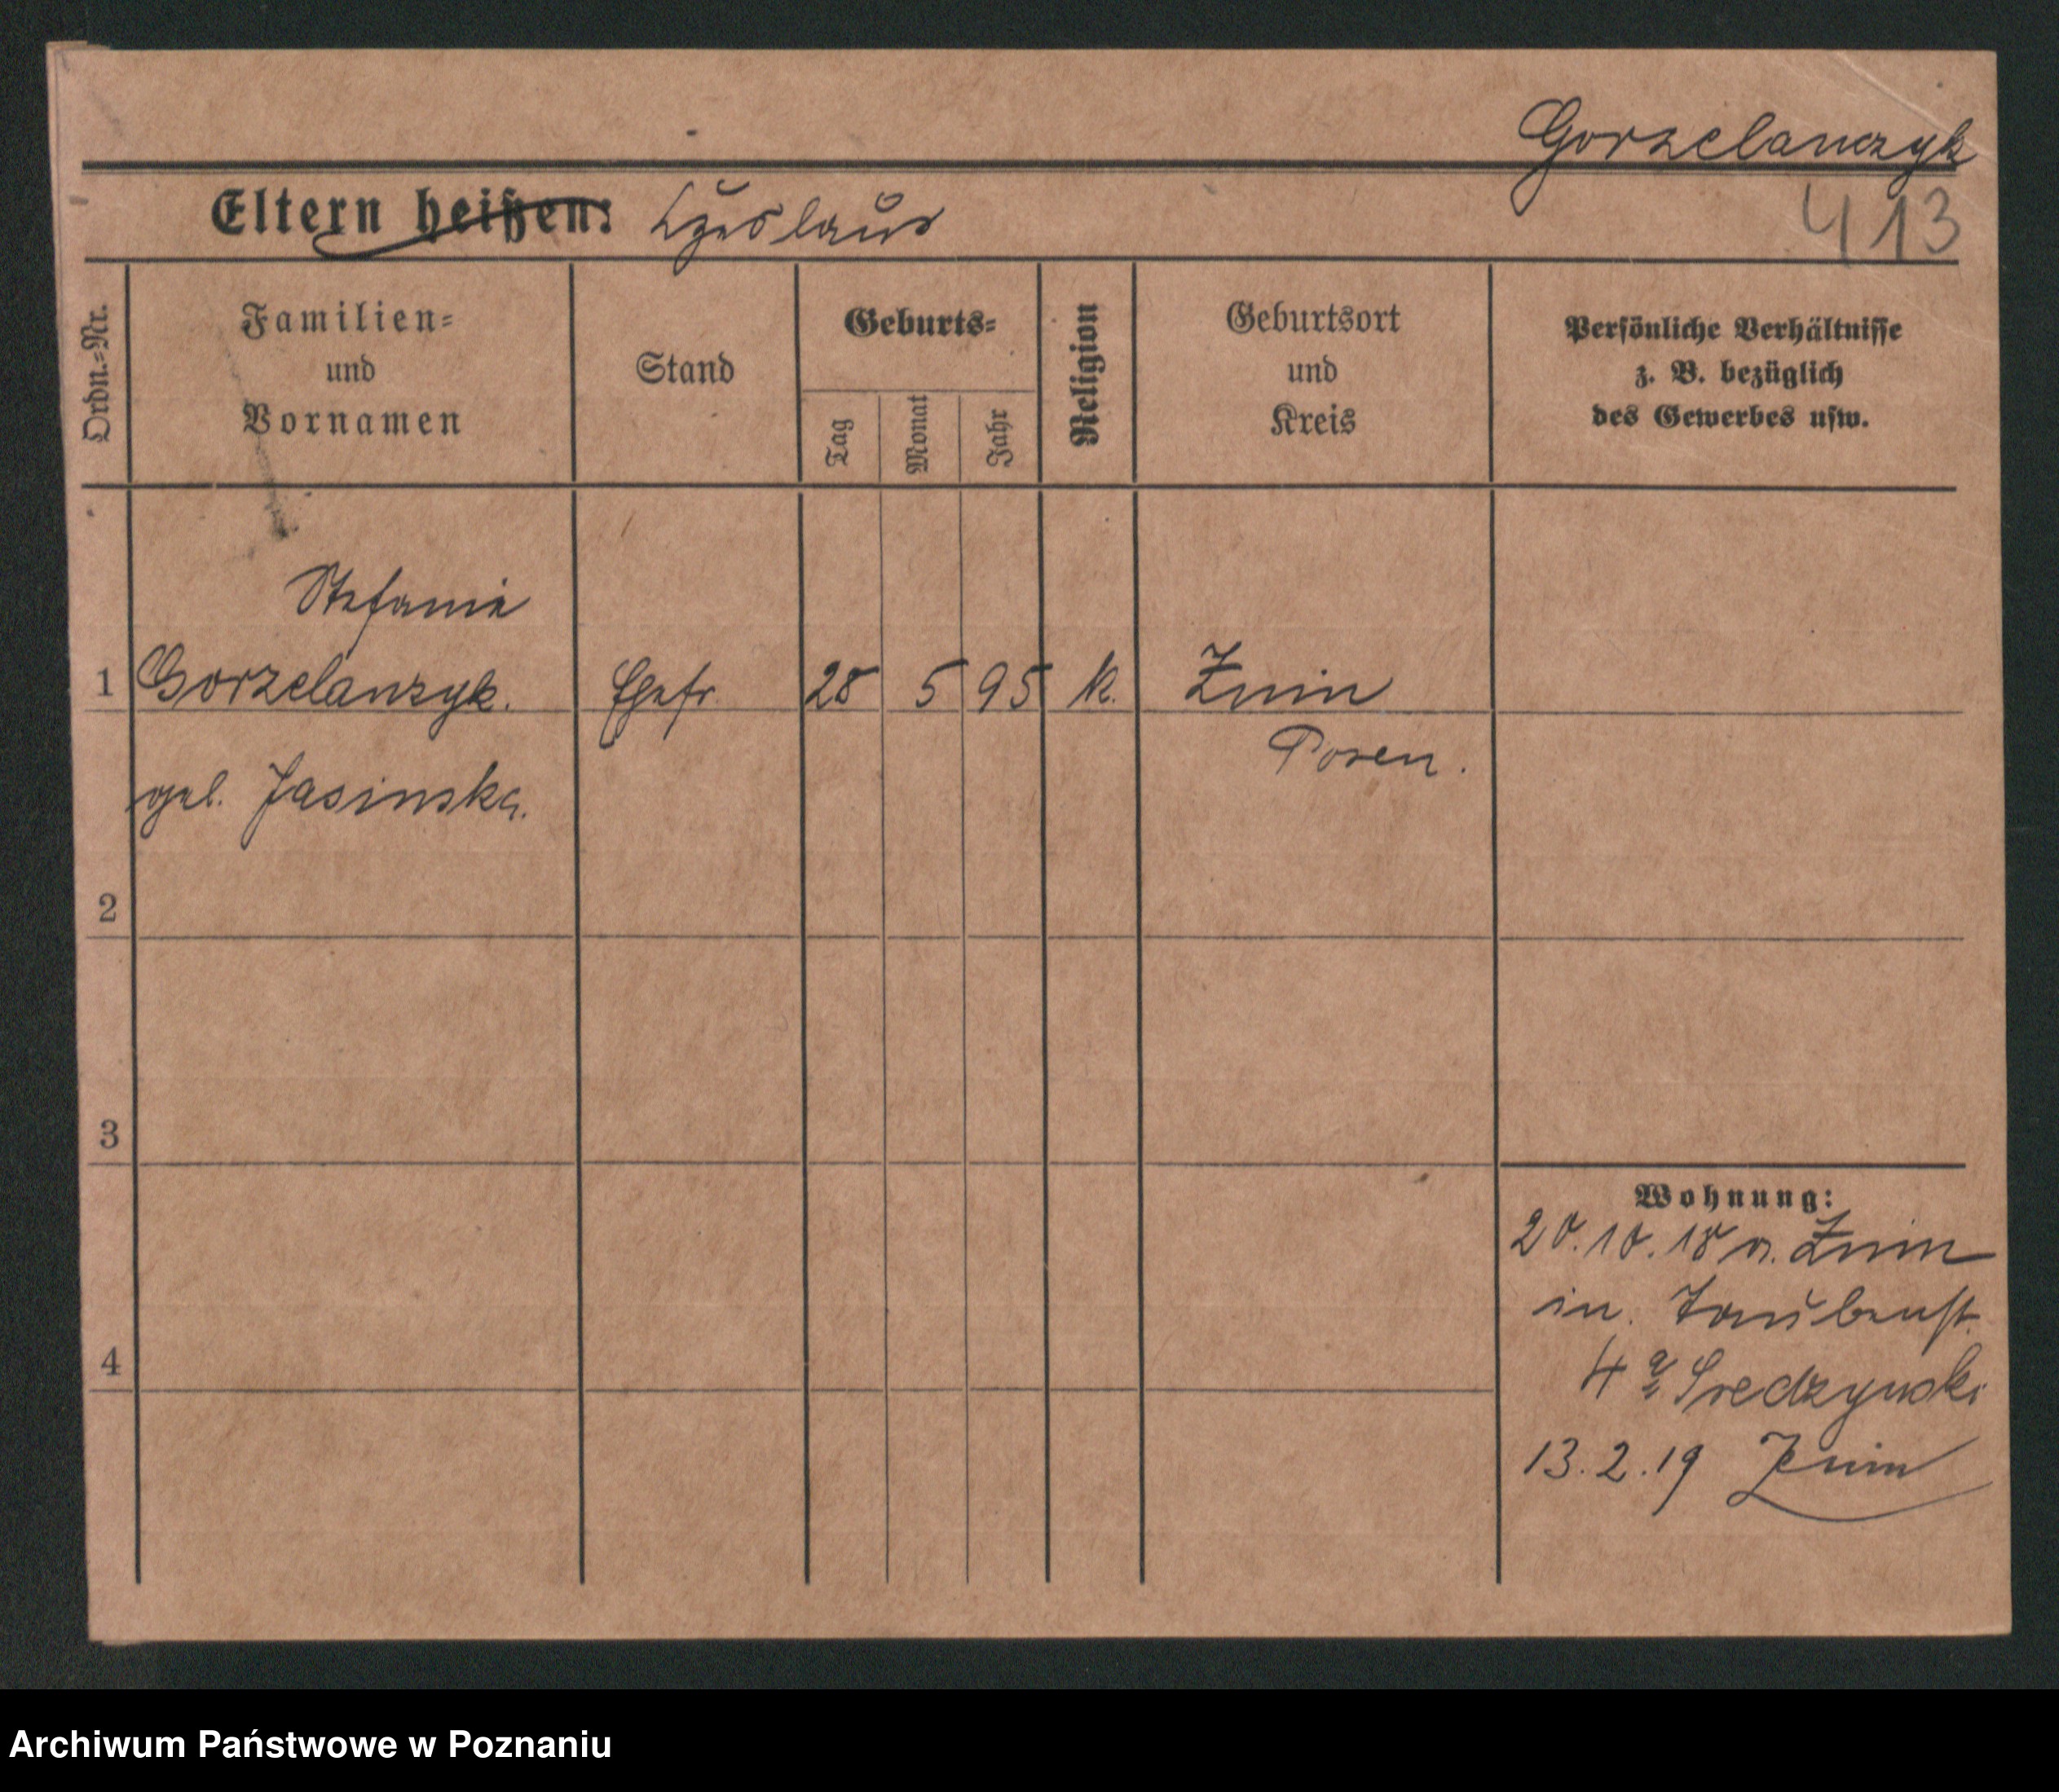 Gorzelanczyk
413
Eltern heißen:
Ordn.=Nr.
Familien=
und
Vornamen
Stand
Geburts=
Tag
Monat
Jahr
Religion
Geburtsort
und
Kreis
Persönliche Verhältnisse
z. B. bezüglich
des Gewerbes usw.
Stefanie
1 Gorzelanzyk. Ehefr. 28 5 95 k. Znin
Posen.
geb. Jasinska.
2
3
4
Wohnung:
20.10.18 v. Znin
in. Taubenst.
4 a Sredzynski
13.2.19 Znin
Archiwum Państwowe w Poznaniu